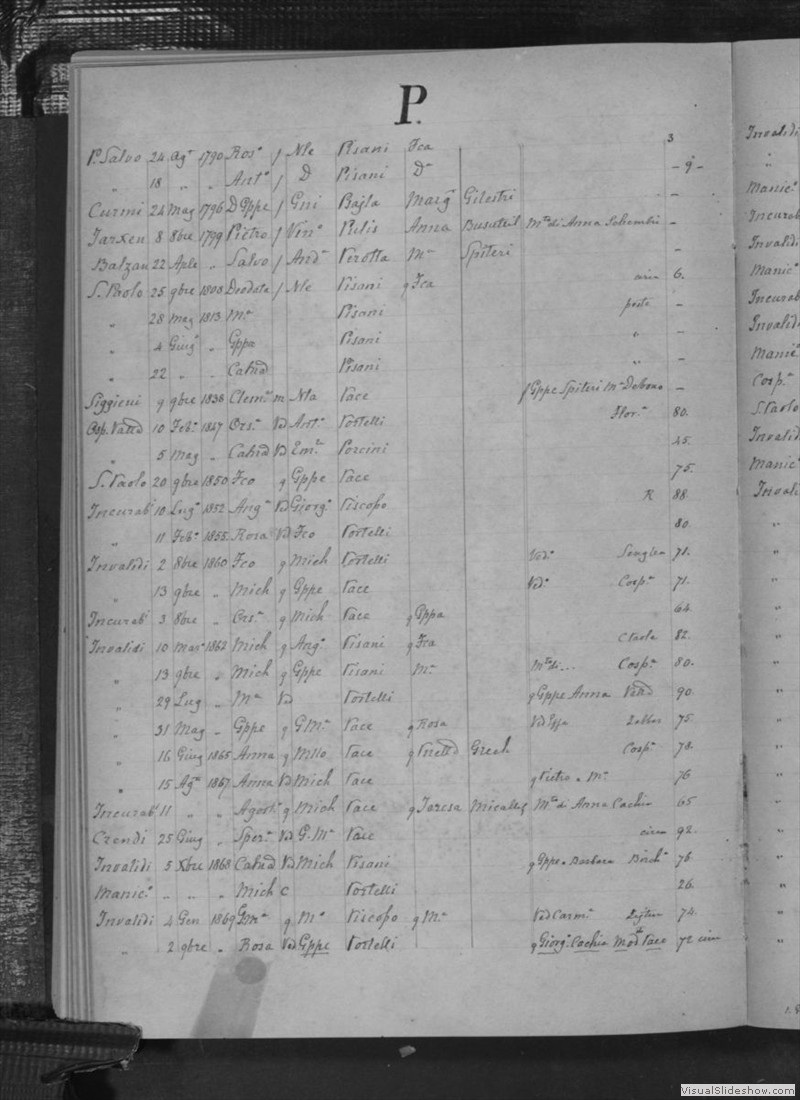 P.
3
P. Salvo 24 Agᵒ 1790 Rosᵃ / Nle Pisani Fca
„ 18 „ „ Antᵒ / D Pisani Dᵃ - 9 -
Curmi 24 Mag 1796 D Gppe / Giri Bajla Marg Gilestri -
Tarxen 8 8bre 1799 Pietro / Vinᵒ Pulis Anna Busuteil Mᵗᵒ di Anna Schembri -
Balzan 22 Aple „ Salvo / Andᵃ Perotta Mᵃ Spiteri -
S. Paolo 25 9bre 1808 Deodata / Nle Pisani q Fca circa 6.
„ 28 mag 1813 Mᵃ Pisani -
„ 4 Giugᵒ „ Gppa Pisani „ -
„ 22 „ „ Catnd Pisani „ -
Siggieni 9 9bre 1838 Clemᵉ m Nta Pace Gppe Spiteri Mᵃ Debono -
Osp. Vallᵃ 10 Febᵒ 1847 Orsᵃ Vd Antᵒ Portelli Florᵃ 80.
„ 5 Mag „ Catnd Vd Emˡᵉ Porcini 45.
S. Paolo 20 9bre 1850 Fco q Gppe Pace 75.
Incurabⁱ 10 Lugᵒ 1852 Angᵃ Vd Giorgᵒ Piscopo R 88
„ 11 Febᵒ 1855 Rosa Vd Fco Portelli 80.
Invalidi 2 8bre 1860 Fco q Mich Portelli Vedᵒ Senglea 71.
„ 13 9bre „ Mich q Gppe Pace Vedᵒ Cospᵃ 71.
Incurabⁱ 3 8bre „ Orsᵃ q Mich Pace q Gppa 64.
Invalidi 10 Marᵒ 1862 Mich q Angᵒ Pisani q Fca 82.
„ 13 9bre „ Mich q Gppe Pisani Mᵃ Mᵗᵒ di... Cospᵃ 80.
„ 29 Lug „ Mᵃ Vd Portelli q Gppe Anna 90.
„ 31 Mag „ Gppe q G.Mᵃ Pace q Rosa Vd Gppa Zabbar 75.
„ 16 Giug 1865 Anna q Mllo Pace Grech Cospᵃ 78.
„ 15 Agᵒ 1867 Anna Vd Mich Pace q Pietro e Mᵃ 76
Incurabⁱ 11 „ „ Agostⁿᵒ q Mich Pace q Teresa Micallef Mᵗᵒ di Anna Cachia 65
Crendi 25 Giug „ Sperᵃ Vd G.Mᵃ Pace circa 92.
Invalidi 5 Xbre 1868 Catnd Vd Mich Pisani q Gppe e Barbara Birchᵃ 76.
Manicᵒ „ „ „ Mich C Portelli 26.
Invalidi 4 Gen 1869 GMᵃ q Mᵒ Piscopo q Mᵃ Vd Carmᵃ Zejtun 74.
„ 2 9bre „ Rosa Vd Gppe Portelli q Giorgᵒ Cachia Modᵗᵃ Pace 72 circa
Invalidi
„
Manicᵒ
Incurab
Invalidi
Manicᵒ
Incurab
Invalidi
Manicᵒ
Cospᵃ
S. Paolo
Invalidi
Manicᵒ
Invali
VisualSlideshow.com